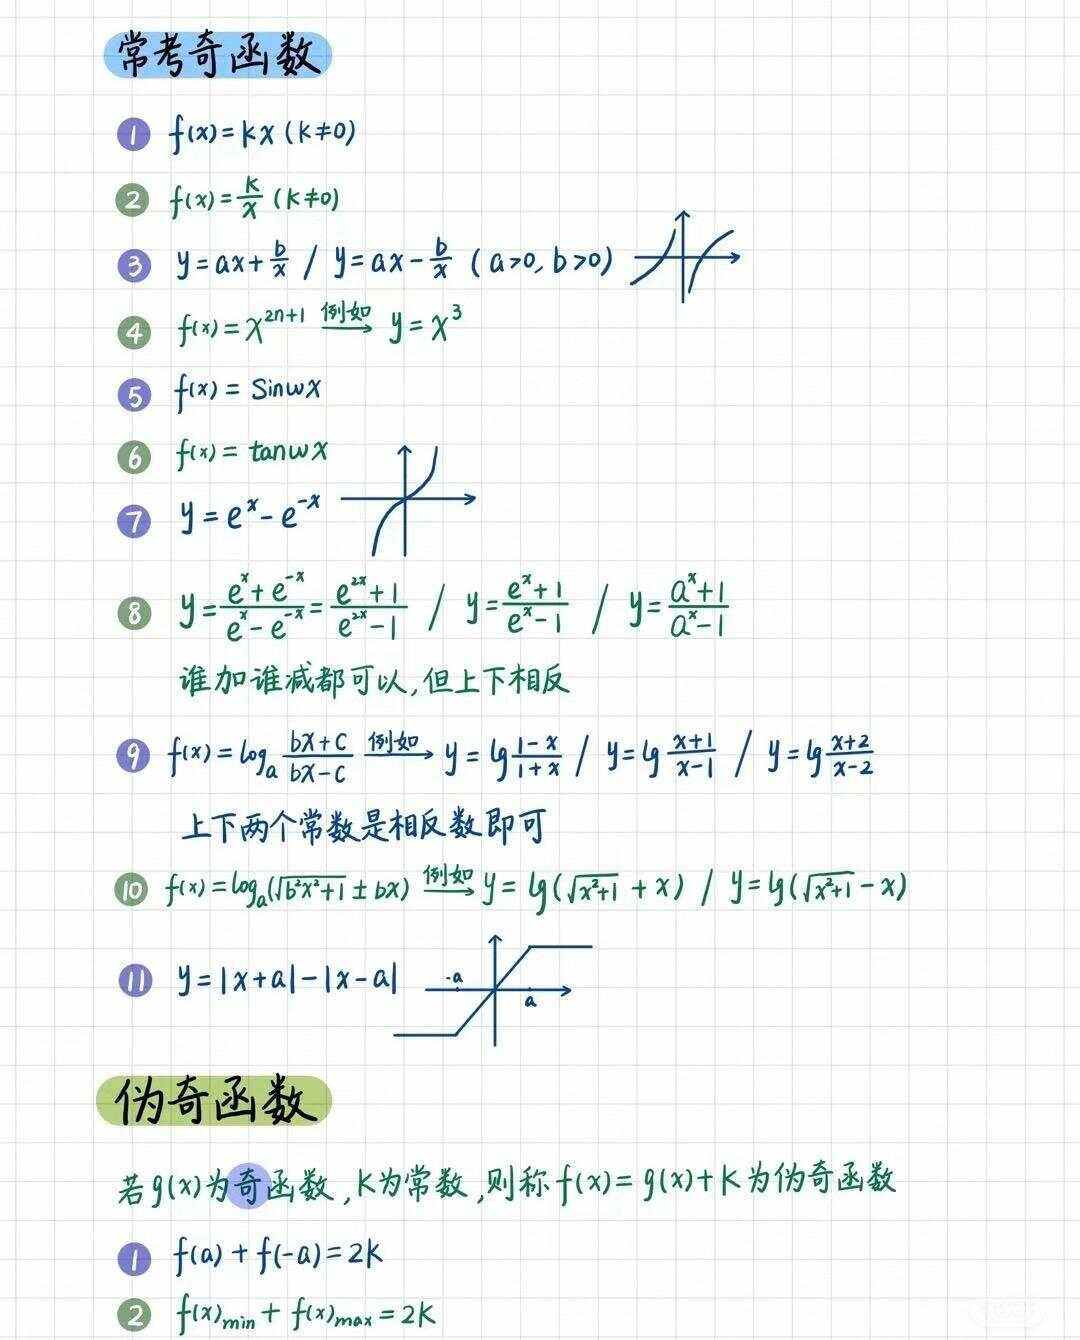 常考奇函数
① f(x)=kx (k≠0)
② f(x)=k/x (k≠0)
③ y=ax+b/x / y=ax-b/x (a>0, b>0)
④ f(x)=x^(2n+1) 例如→ y=x³
⑤ f(x)=sinwx
⑥ f(x)=tanwx
⑦ y=e^x-e^(-x)
⑧ y=(e^x+e^(-x))/(e^x-e^(-x))=(e^(2x)+1)/(e^(2x)-1) / y=(e^x+1)/(e^x-1) / y=(a^x+1)/(a^x-1)
谁加谁减都可以,但上下相反
⑨ f(x)=log_a (bx+c)/(bx-c) 例如→ y=lg (1-x)/(1+x) / y=lg (x+1)/(x-1) / y=lg (x+2)/(x-2)
上下两个常数是相反数即可
⑩ f(x)=log_a(√(b²x²+1)±bx) 例如→ y=lg(√(x²+1)+x) / y=lg(√(x²+1)-x)
⑪ y=|x+a|-|x-a|
-a
a
伪奇函数
若g(x)为奇函数,k为常数,则称f(x)=g(x)+k为伪奇函数
① f(a)+f(-a)=2k
② f(x)min+f(x)max=2k